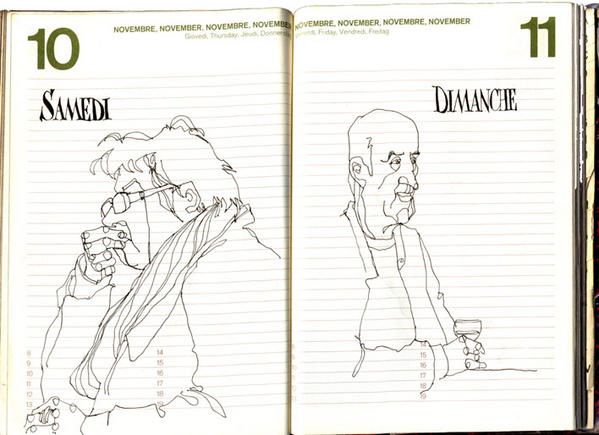 10
NOVEMBRE, NOVEMBER, NOVEMBRE, NOVEMBER
Giovedì, Thursday, Jeudi, Donnerstag
SAMEDI
8
9
10
11
12
13
14
15
16
17
18
19
11
NOVEMBRE, NOVEMBER, NOVEMBRE, NOVEMBER
Venerdì, Friday, Vendredi, Freitag
DIMANCHE
14
15
16
17
18
19